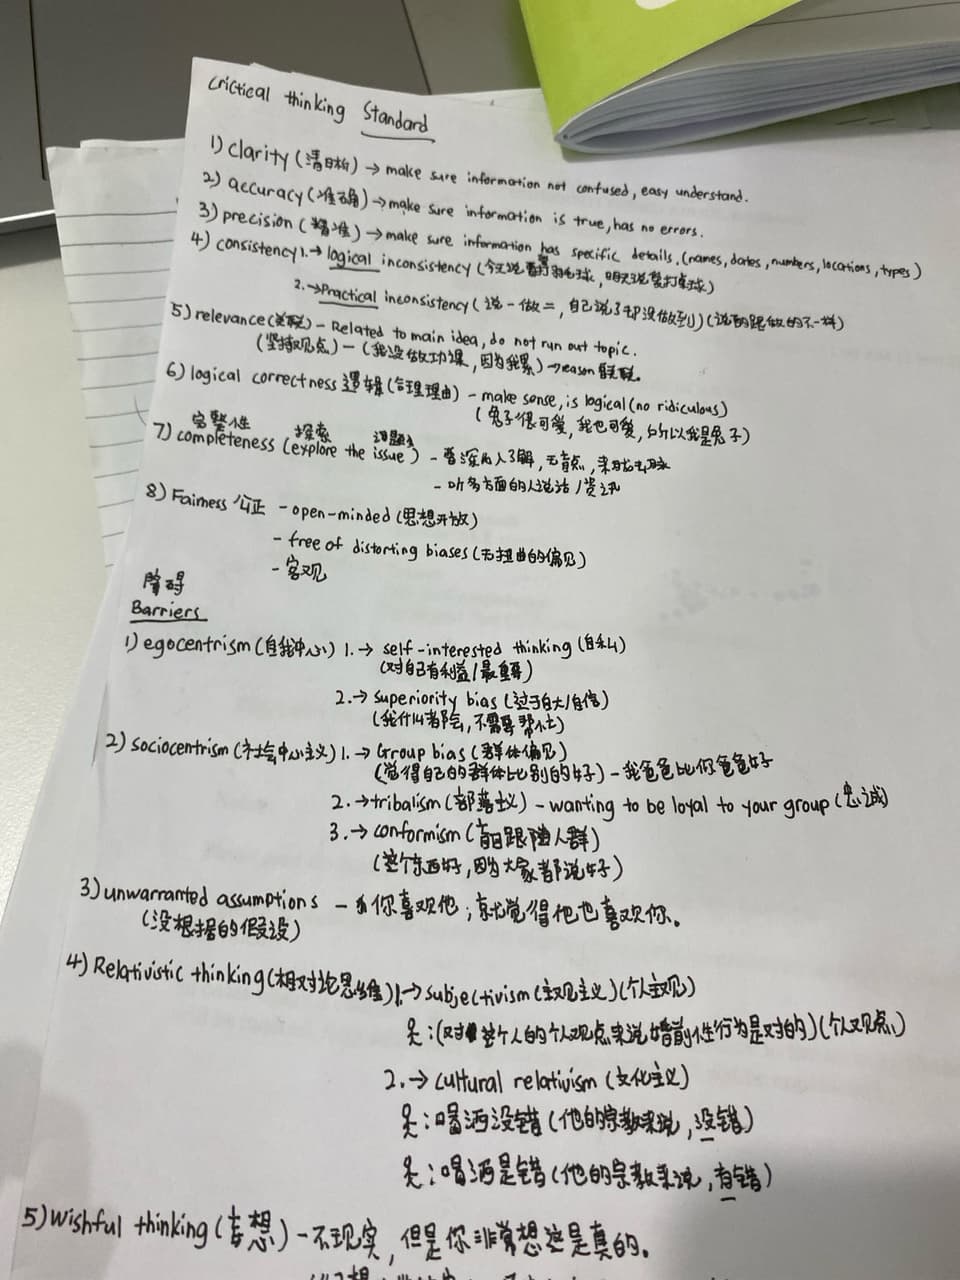 Crictical thinking Standard
1) clarity (清晰) → make sure information not confused, easy understand.
2) accuracy (准确) → make sure information is true, has no errors.
3) precision (精准) → make sure information has specific details. (names, dates, numbers, locations, types)
4) consistency 1. → logical inconsistency (今天说要打羽毛球, 明天说要打桌球)
2. → Practical inconsistency (说一做二, 自己说了却没做到) (说的跟做的不一样)
5) relevance (关联) - Related to main idea, do not run out topic.
(坚持观点) - (我没做功课, 因为我累) → reason 关联.
6) logical correctness 逻辑 (合理理由) - make sense, is logical (no ridiculous)
(兔子很可爱, 我也可爱, 所以我是兔子)
完整性 探索 课题
7) completeness (explore the issue) - 要深入了解, 无盲点, 来龙去脉
- 听多方面的人说话 / 资讯
8) Fairness 公正 - open-minded (思想开放)
- free of distorting biases (无扭曲的偏见)
- 客观
障碍
Barriers
1) egocentrism (自我中心) 1. → self-interested thinking (自私)
(对自己有利益 / 最重要)
2. → superiority bias (过于自大 / 自信)
(我什么都会, 不需要帮忙)
2) sociocentrism (社会中心主义) 1. → Group bias (群体偏见)
(觉得自己的群体比别的好) - 我爸爸比你爸爸好
2. → tribalism (部落主义) - wanting to be loyal to your group (忠诚)
3. → conformism (盲目跟随人群)
(这个东西好, 因为大家都说好)
3) unwarranted assumptions - 你喜欢他, 就觉得他也喜欢你。
(没根据的假设)
4) Relativistic thinking (相对论思维) 1. → subjectivism (主观主义) (个人主观)
(对 这个人的个人观点来说婚前性行为是对的) (个人观点)
2. → cultural relativism (文化主义)
喝酒没错 (他的宗教来说, 没错)
喝酒是错 (他的宗教来说, 有错)
5) Wishful thinking (妄想) - 不现实, 但是你非常想这是真的。